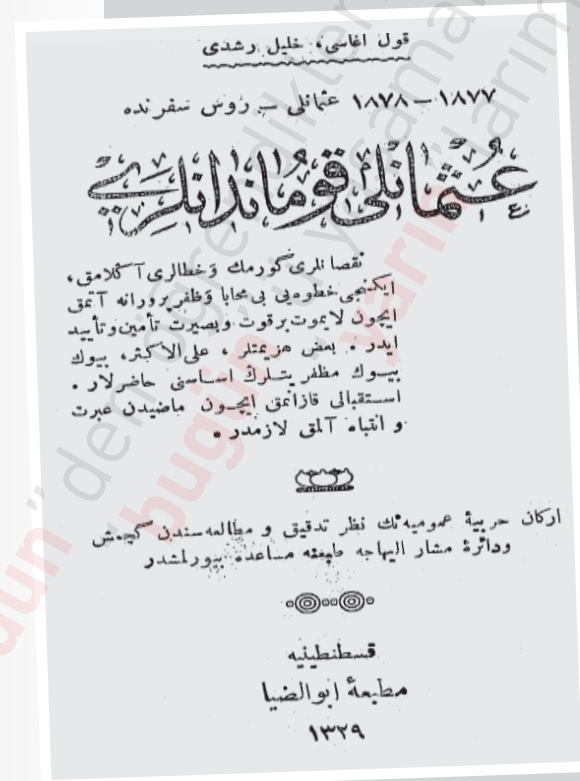 قول اغاسی، خلیل رشدی
١٨٧٧ — ١٨٧٨ عثمانلی — روس سفرنده
عثمانلی قوماندانلری
نقصانلری گورمك وخطالری آڭلامق،
ایكنجی خطوه‌یی بی محابا وظفرپرورانه آتمق
ایچون لایموت برقوت وبصیرت تأمین وتأیید
ایدر . بعض هزیمتلر ، علی الاكثر، بیوك
بیوك مظفریتلرك اساسنی حاضرلار .
استقبالی قازانمق ایچون ماضیدن عبرت
و انتباه آلمق لازمدر .
اركان حربیهٔ عمومیه‌نك نظر تدقیق و مطالعه‌سندن گچمش
ودائرهٔ مشار الیهاجه طبعنه مساعده بیورلمشدر
قسطنطینیه
مطبعهٔ ابوالضیا
١٣٢٩
dün
"den öğre
dikter
bugün
"ü yaşamal
yarın
"larım